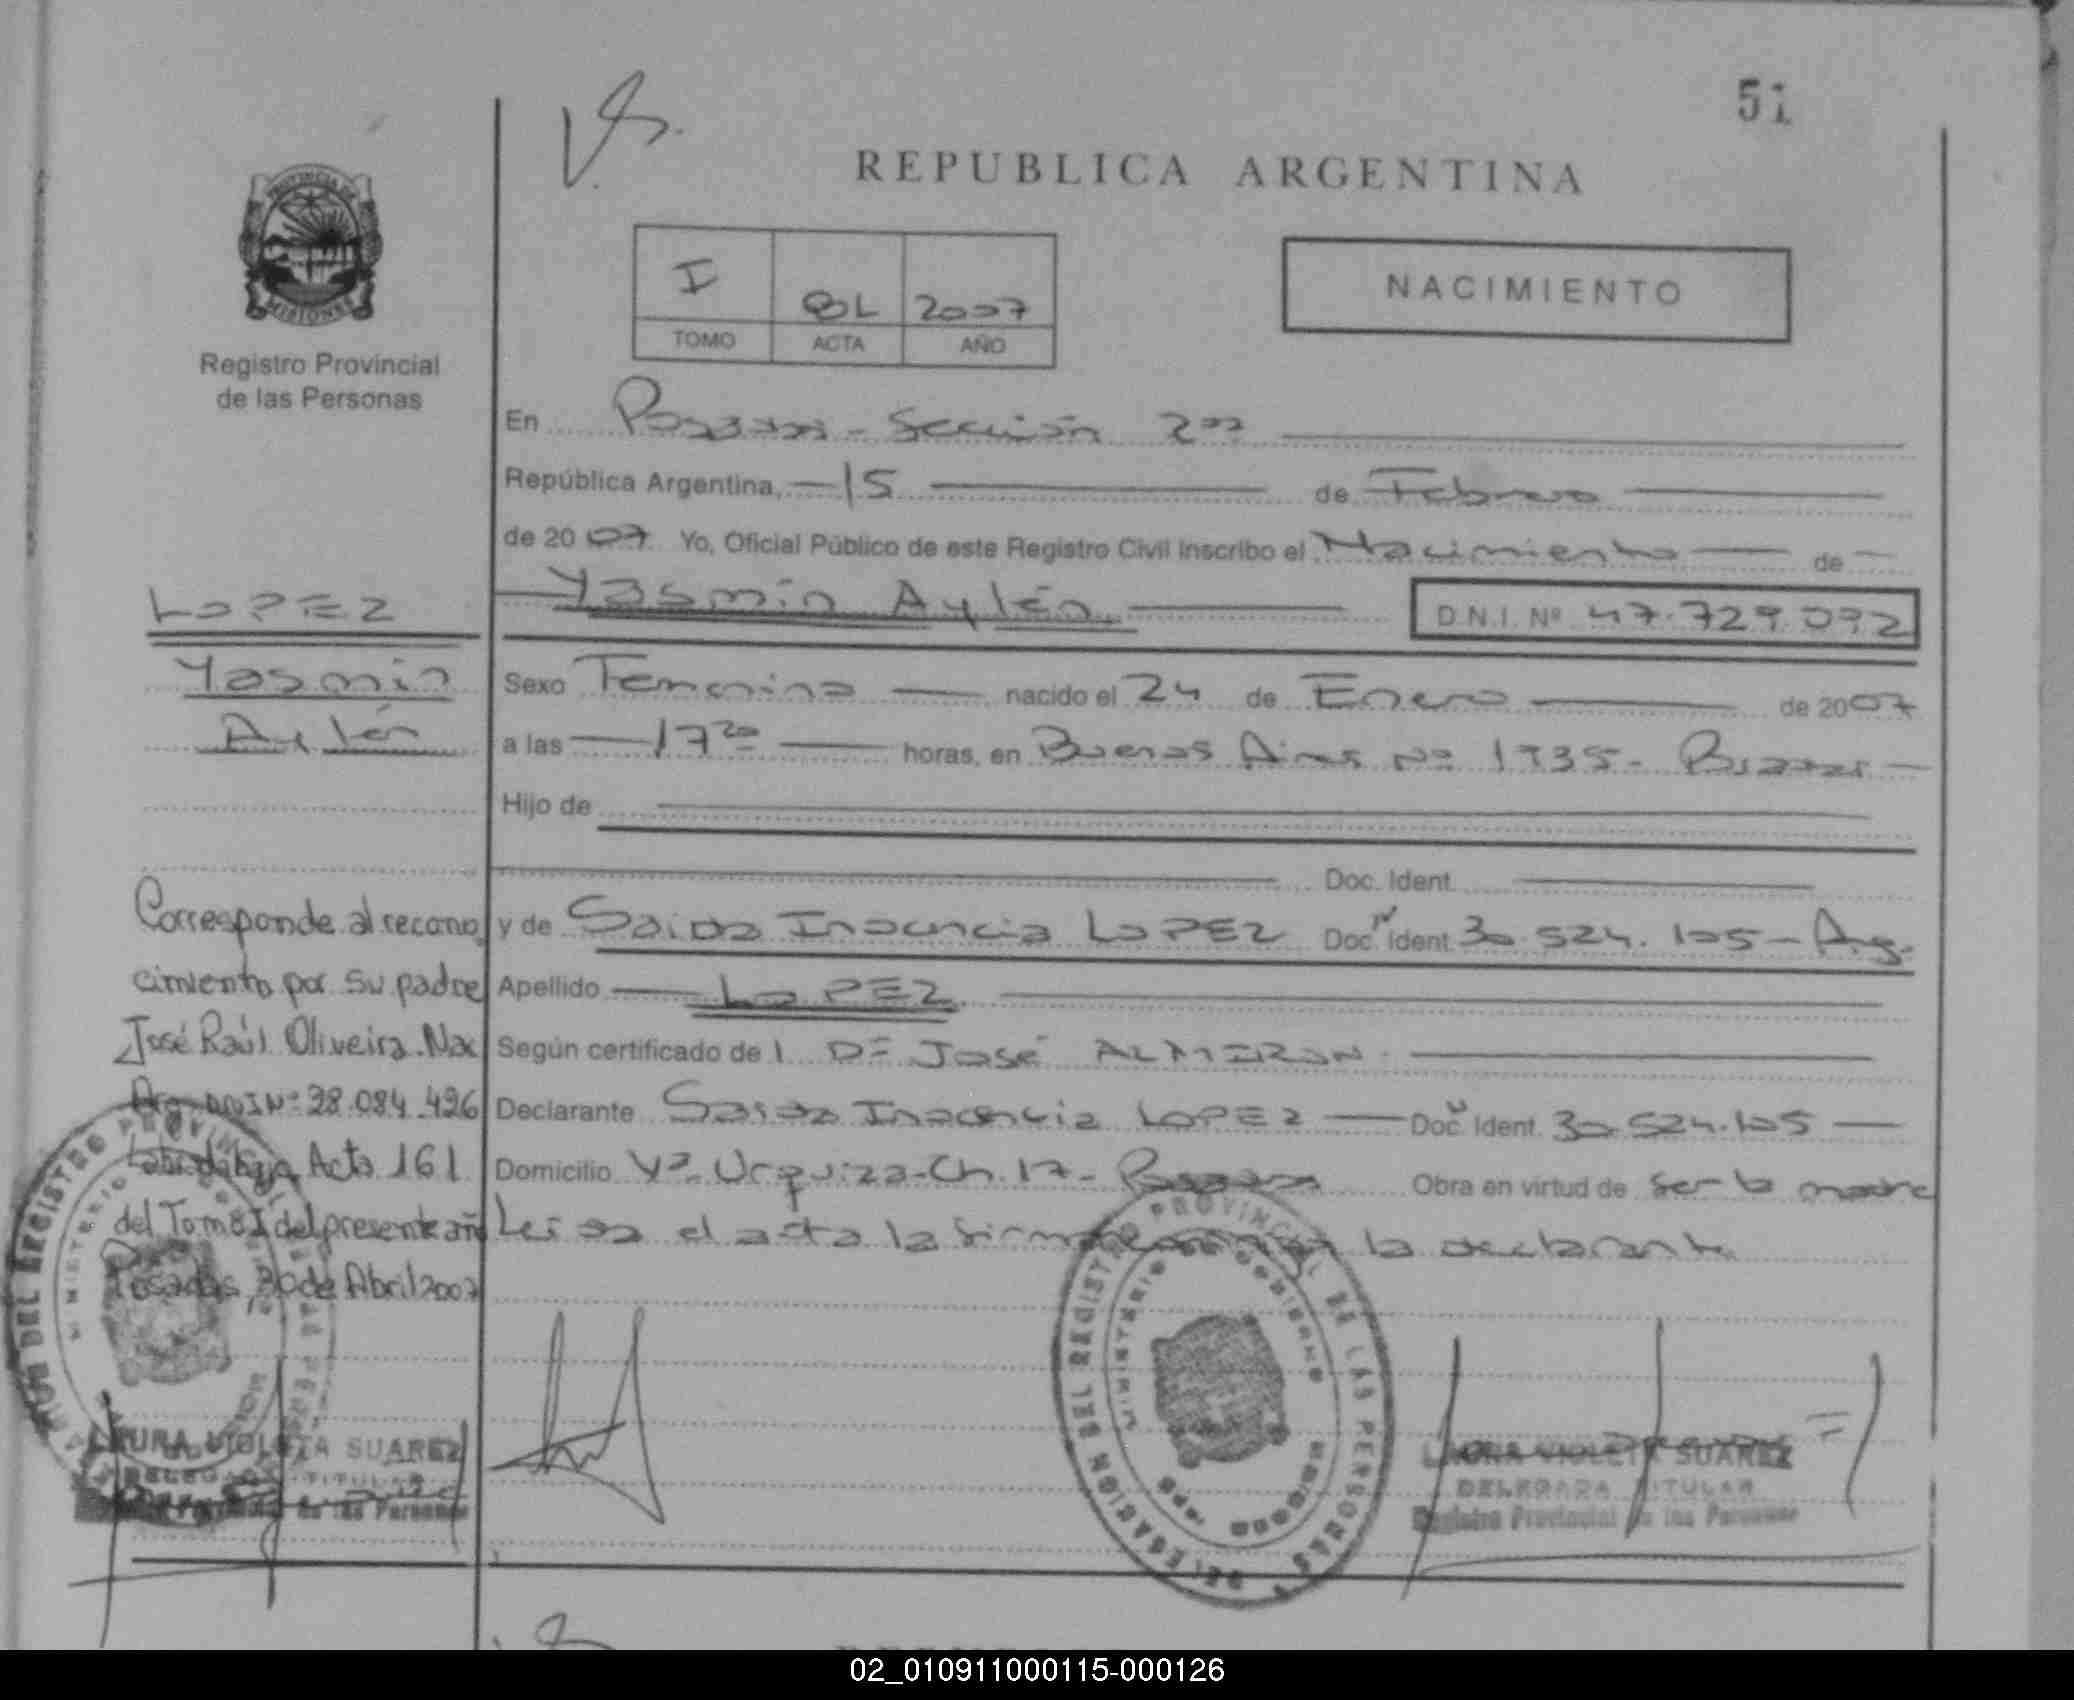 51
REPUBLICA ARGENTINA
PROVINCIA DE
MISIONES
Registro Provincial
de las Personas
I 2007
TOMO ACTA AÑO
NACIMIENTO
En Posadas - Sección 2da
República Argentina, 15 de Febrero
de 2007 Yo, Oficial Público de este Registro Civil Inscribo el Nacimiento de
Yasmín Aylén D.N.I. Nº 47.729.092
Sexo Femenino nacido el 24 de Enero de 2007
a las 17 20 horas, en Buenos Aires Nº 1935 - Posadas
Hijo de
Doc. Ident.
y de Saida Inocencia LOPEZ Doc. Ident. 30.524.105 - Arg.
Apellido LOPEZ
Según certificado de DE José ALMIRON
Declarante Saida Inocencia LOPEZ Doc. Ident. 30.524.105
Domicilio Vª Urquiza - Ch. 17 - Posadas Obra en virtud de ser la madre
Leída el acta la firma la declarante
LOPEZ
Yasmín
Aylén
Corresponde al recono
cimiento por su padre
José Raúl Oliveira. Nac
Arg. DNI Nº 28.084.426
Labrada bajo Acta 161
del Tomo I del presente año
Posadas, 20 de Abril 2007
LAURA VIOLETA SUAREZ
DELEGADA TITULAR
Registro Provincial de las Personas
DELEGACION DEL REGISTRO PROVINCIAL DE LAS PERSONAS
MINISTERIO DE GOBIERNO
LAURA VIOLETA SUAREZ
DELEGADA TITULAR
Registro Provincial de las Personas
02_010911000115-000126